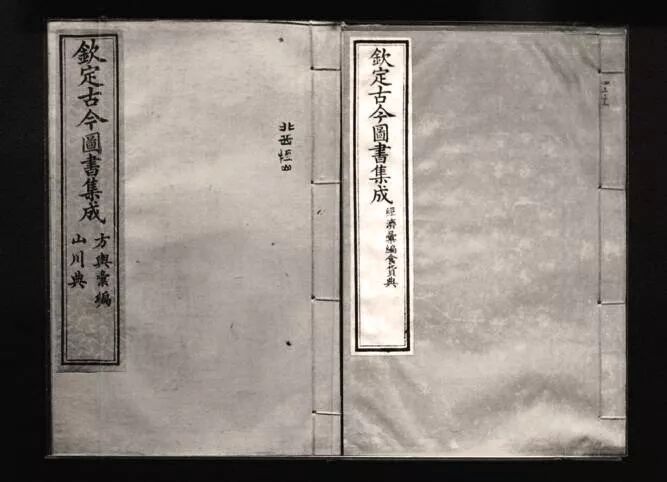 欽定古今圖書集成
方輿彙編
山川典
北岳恒山
欽定古今圖書集成
經濟彙編食貨典